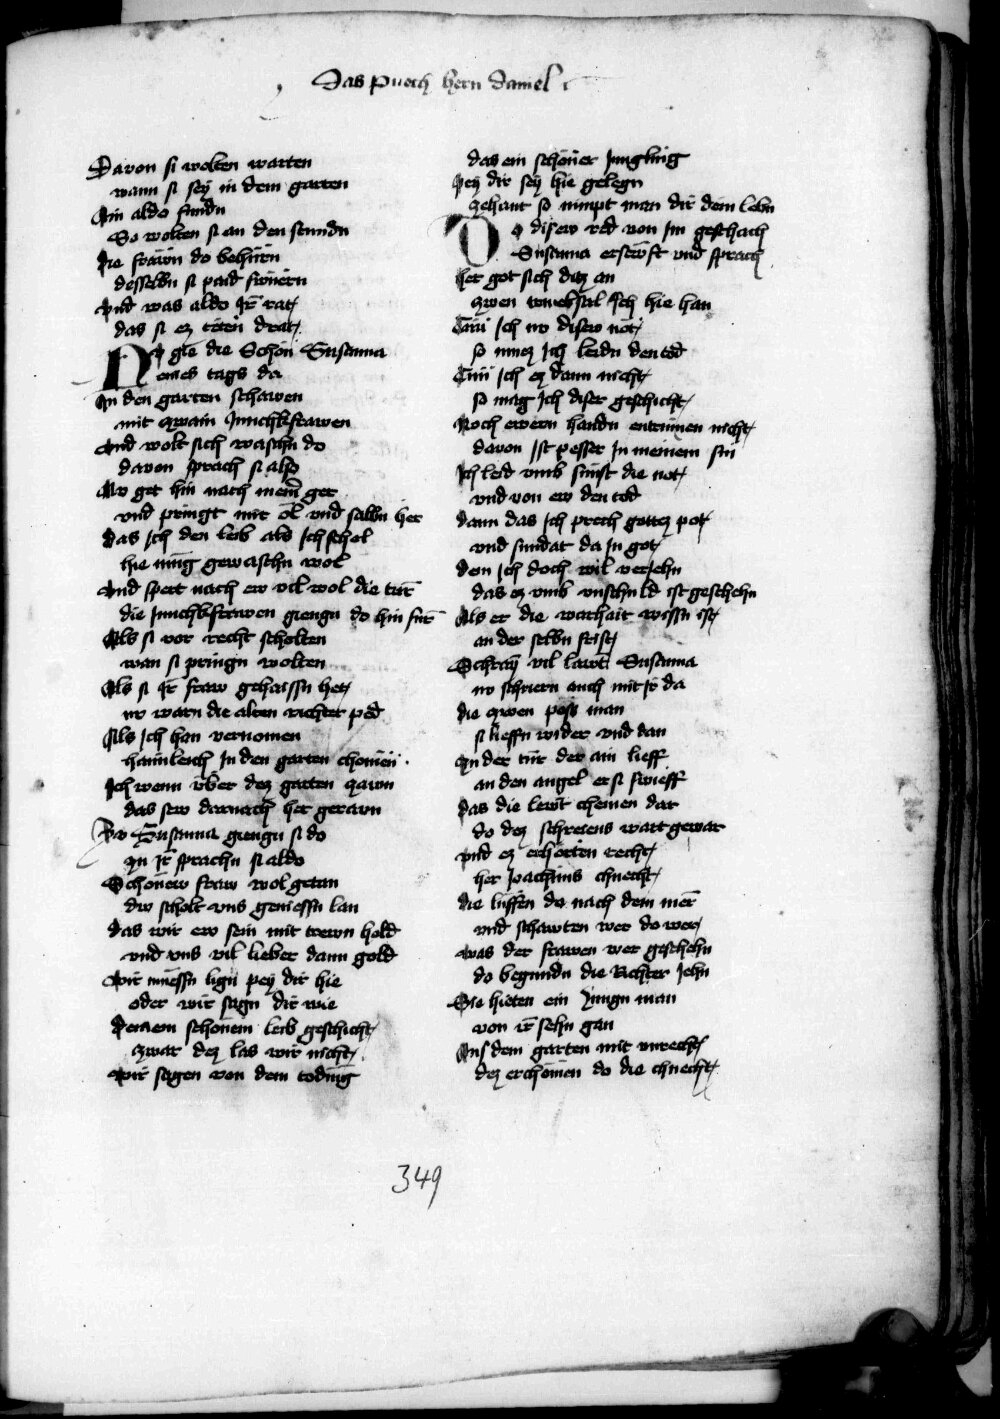 Das puech hern daniel
Davon si wolten warten
wann si sey in dem garten
Ain aldo fundn
So wolten si an den stundn
die frawn do behurn
desselbn si paid swuern
vnd was aldo ir rat
das si ez teten drat
No gie die Schon Susanna
eines tags da
In den garten schawen
mit zwain Junchkfrawen
vnd wolt sich waschn do
davon sprach si also
Nv get hin nach meinr ger
vnd pringt mir ol vnd salbn her
das ich den leib als ich schol
hie mug gewaschn wol
vnd spert nach ew vil wol die tur
die Junchkfrawen giengn do hin fur
Als si vor recht scholten
wan si pringn wolten
Als si ir fraw gehaissn het
no warn die alten richter ped
Als ich han vernomen
haimleich In den garten chomen
Ich wenn vber dez garten zawn
das sew darnach her gerawn
Zw Susanna giengn si do
zu ir sprachn si aldo
Schonew fraw wol getan
dw scholt vns geniessn lan
das wir ew sein mit trewn hold
vnd vns vil lieber dann gold
wir muessn lign pey dir hie
oder wir sagn dir wie
deinem schonem leib geschicht
zwar dez las wir nicht
wir sagen von dem toding
das ein schoner Jungling
pey dir sey hie gelegn
zehant so nimpt man dir dein lebn
Do disew red von im geschach
Susanna ersewft vnd sprach
her got sich ditz an
zwen truebsal Ich hie han
Tun Ich nw disew not
so muez Ich leidn den tod
Tun Ich ez dann nicht
so mag Ich diser geschicht
Noch ewern handn entrinnen nicht
davon ist pesser In meinem sin
Ich leid vmb sunst die not
vnd von ew den tod
dann das Ich prech gottez pot
vnd sundat da In got
dem Ich doch wil veriehn
das ez vmb vnschuld ist geschehn
Als er die warhait wissn ist
an der selbn frist
Schray vil lawt Susanna
no schriern auch mit ir da
die zwen poss man
si lieffn wider vnd dan
zu der tur der ain lieff
an den angel er si swieff
das die lewt chemen dar
do dez schreiens wart gewar
vnd ez erhorten recht
her Joachims chnecht
die luffen do nach dem mer
vnd schawtn wer do wer
was der frawen wer geschehn
do begundn die Richter Jehn
Sie hieten ein Jungn man
von ir sehn gan
Aus dem garten mit vnrecht
dez erchomen do die chnecht
349